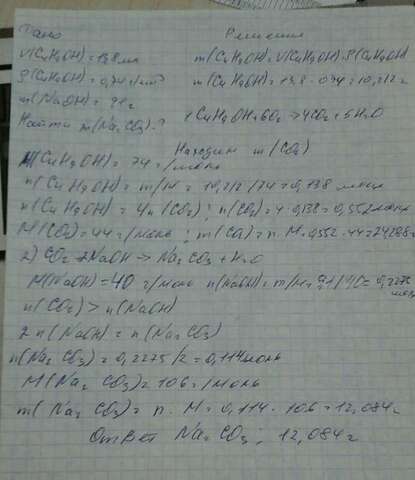 Дано Решение
V(C4H9OH)=13,8мл m(C4H9OH)=V(C4H9OH)·ρ(C4H9OH)
ρ(C4H9OH)=0,74 г/мл m(C4H9OH)=13,8·0,74=10,212г
m(NaOH)=9,1г
1) C4H9OH+6O2→4CO2+5H2O
Найти m(Na2CO3)-?
Находим m(CO2)
M(C4H9OH)=74г/моль
n(C4H9OH)=m/M=10,212/74=0,138 моль
n(C4H9OH)=4n(CO2); n(CO2)=4·0,138=0,552моль
M(CO2)=44г/моль; m(CO2)=n·M=0,552·44=24,288г
2) CO2+2NaOH→Na2CO3+H2O
M(NaOH)=40 г/моль n(NaOH)=m/M=9,1/40=0,2275 моль
n(CO2)>n(NaOH)
2n(NaOH)=n(Na2CO3)
n(Na2CO3)=0,2275/2=0,114моль
M(Na2CO3)=106г/моль
m(Na2CO3)=n·M=0,114·106=12,084г
Ответ Na2CO3; 12,084г